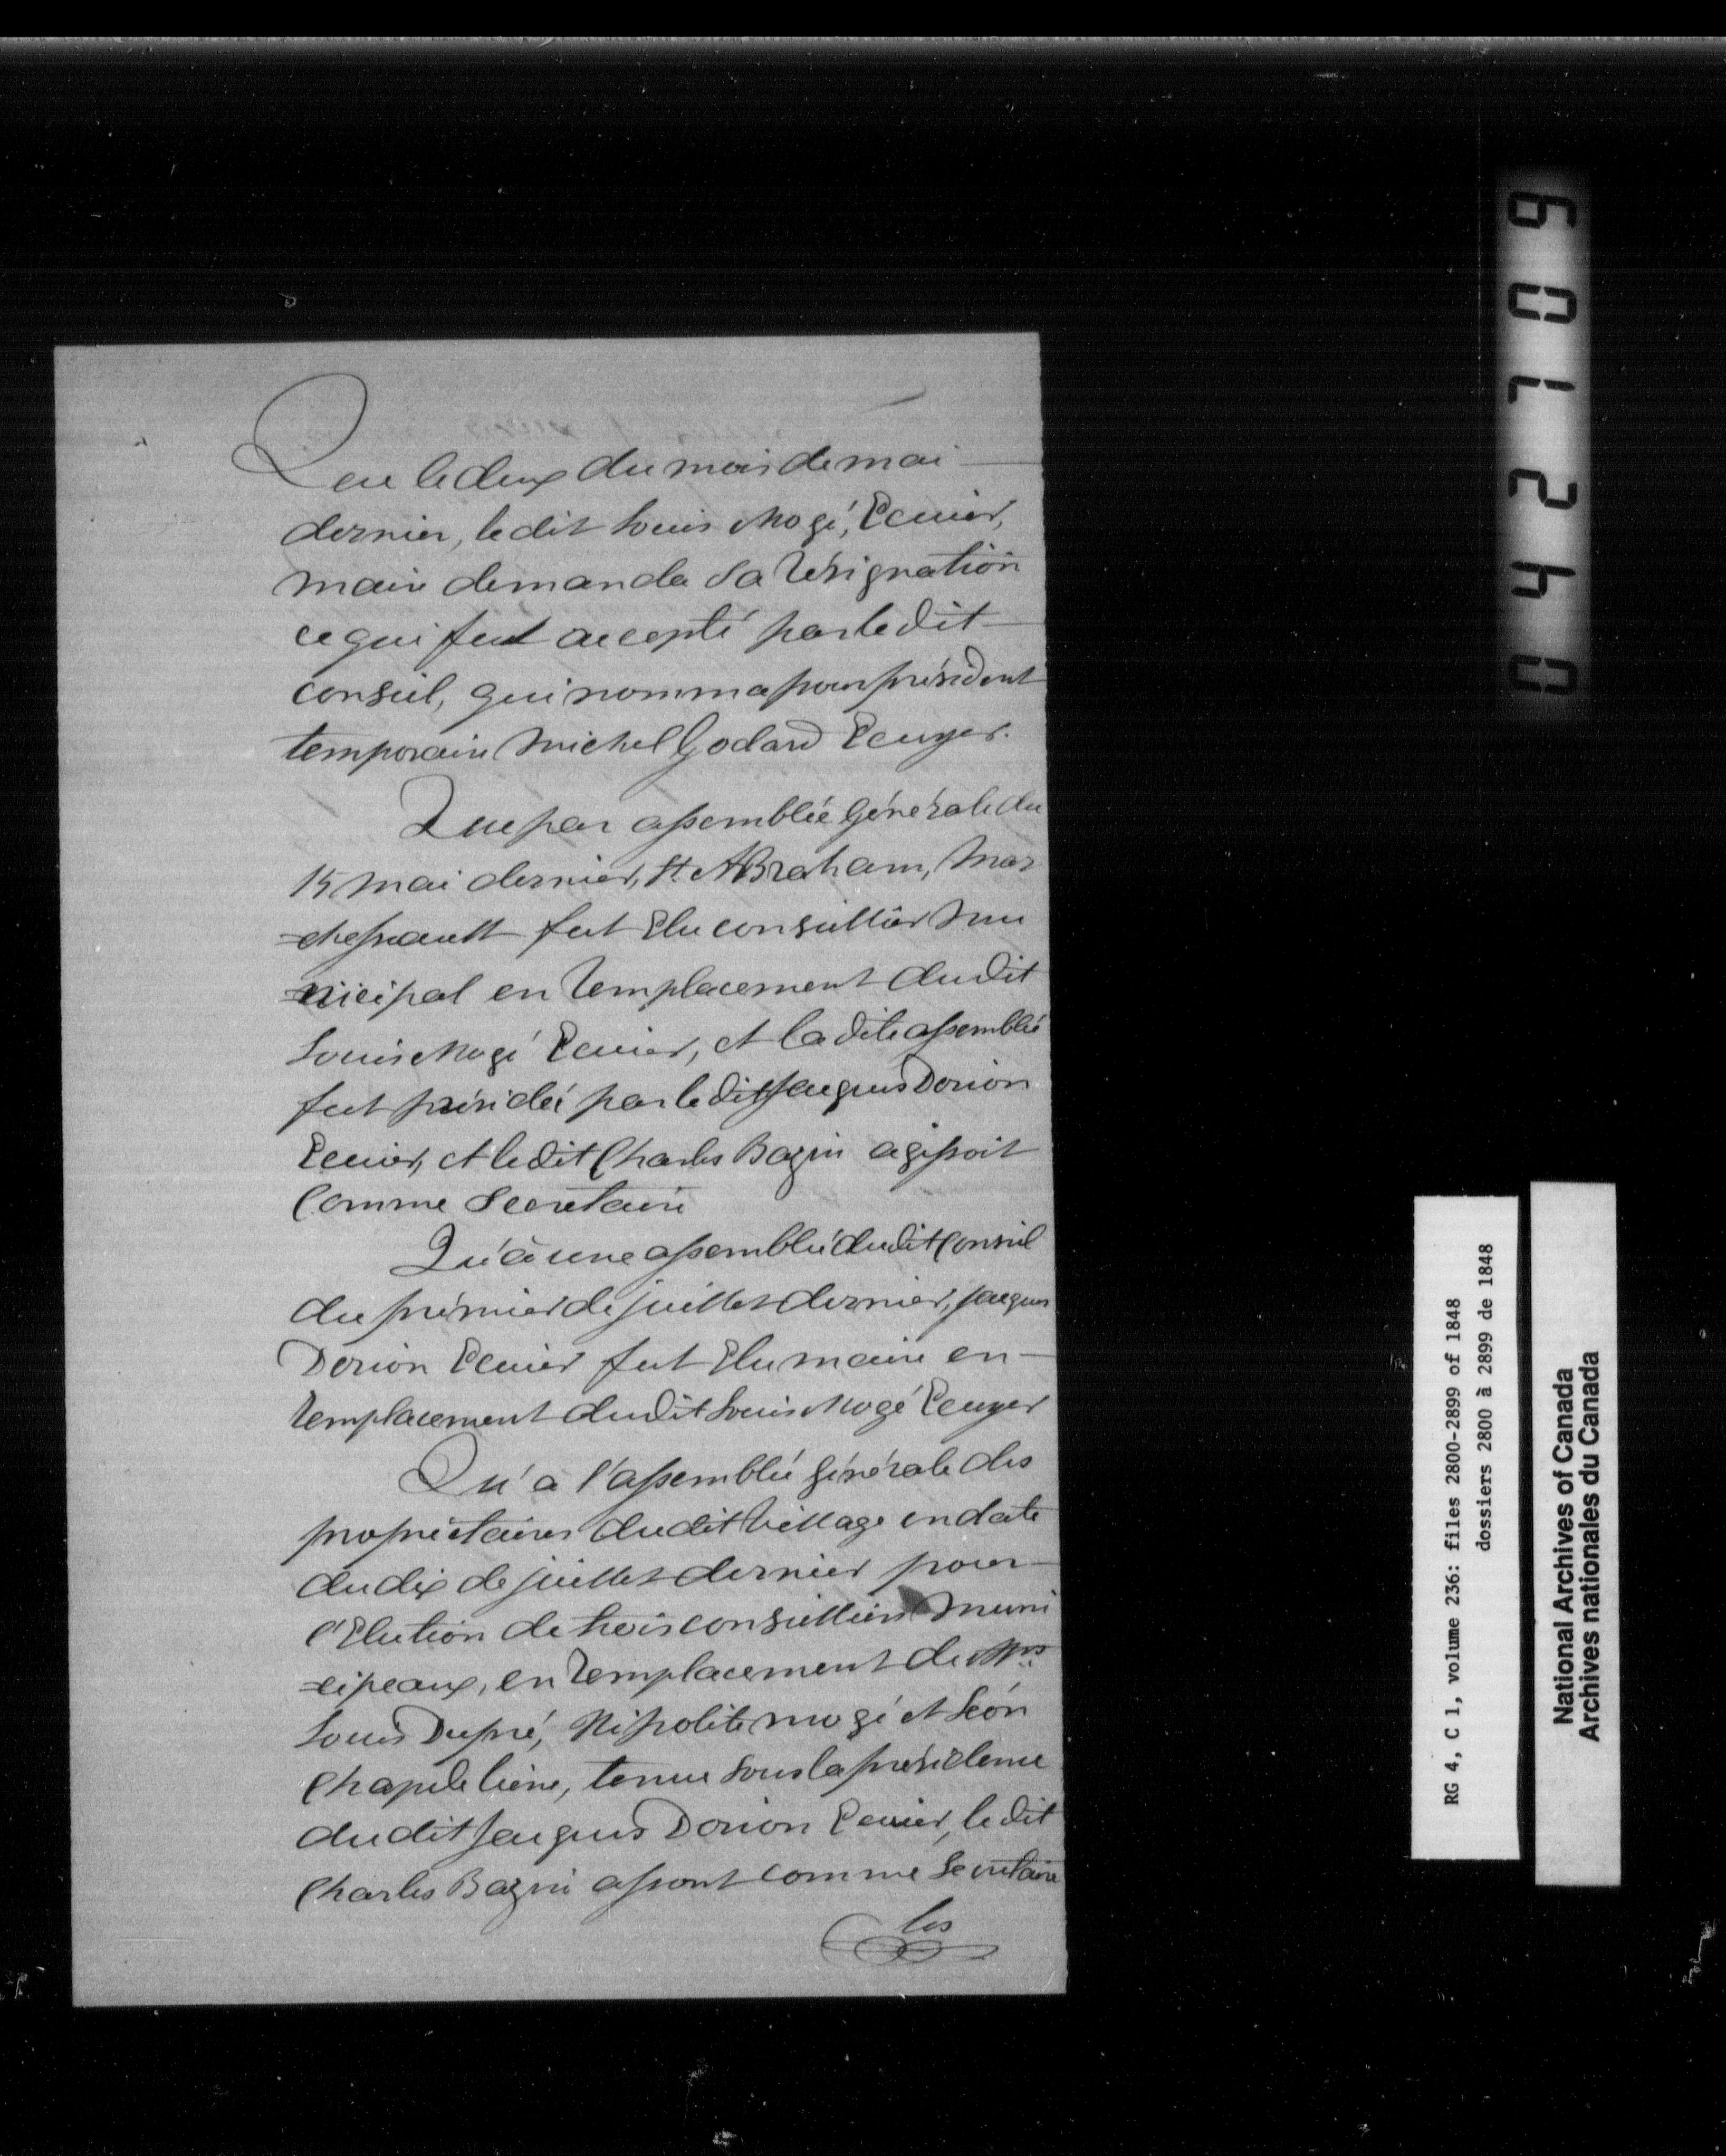 Que le deux du mois de mai
dernier, le dit Louis Mogé, Ecuier,
maire demanda sa résignation
ce qui fut accepté par le dit
conseil, qui nomma pour président
temporaire Michel Godard Ecuyer.
Que par assemblée générale du
15 mai dernier, St. Abraham, Mar
=chessault fut Elu conseiller mu
=nicipal en remplacement du dit
Louis Mogé Ecuier, et la dite assemblée
fut présidée par le dit Jacques Dorion
Ecuier, et le dit Charles Bazin agissoit
Comme Secrétaire
Qu'à une assemblée du dit Conseil
du prémier de juillet dernier, Jacques
Dorion Ecuier fut Elu maire en
remplacement du dit Louis Mogé Ecuyer
Qu'a l'assemblée générale des
propriétaires du dit village en date
du dix de juillet dernier pour
l'Election de trois conseillers muni
=cipeaux, en remplacement de Mrs
Louis Dupré, Hipolite mogé et Léon
Chapdeleine, tenue sous la présidence
du dit Jacques Dorion Ecuier, le dit
Charles Bazin assont comme Secrétaire
les
042709
RG 4, C 1, volume 236: files 2800-2899 of 1848
dossiers 2800 à 2899 de 1848
National Archives of Canada
Archives nationales du Canada